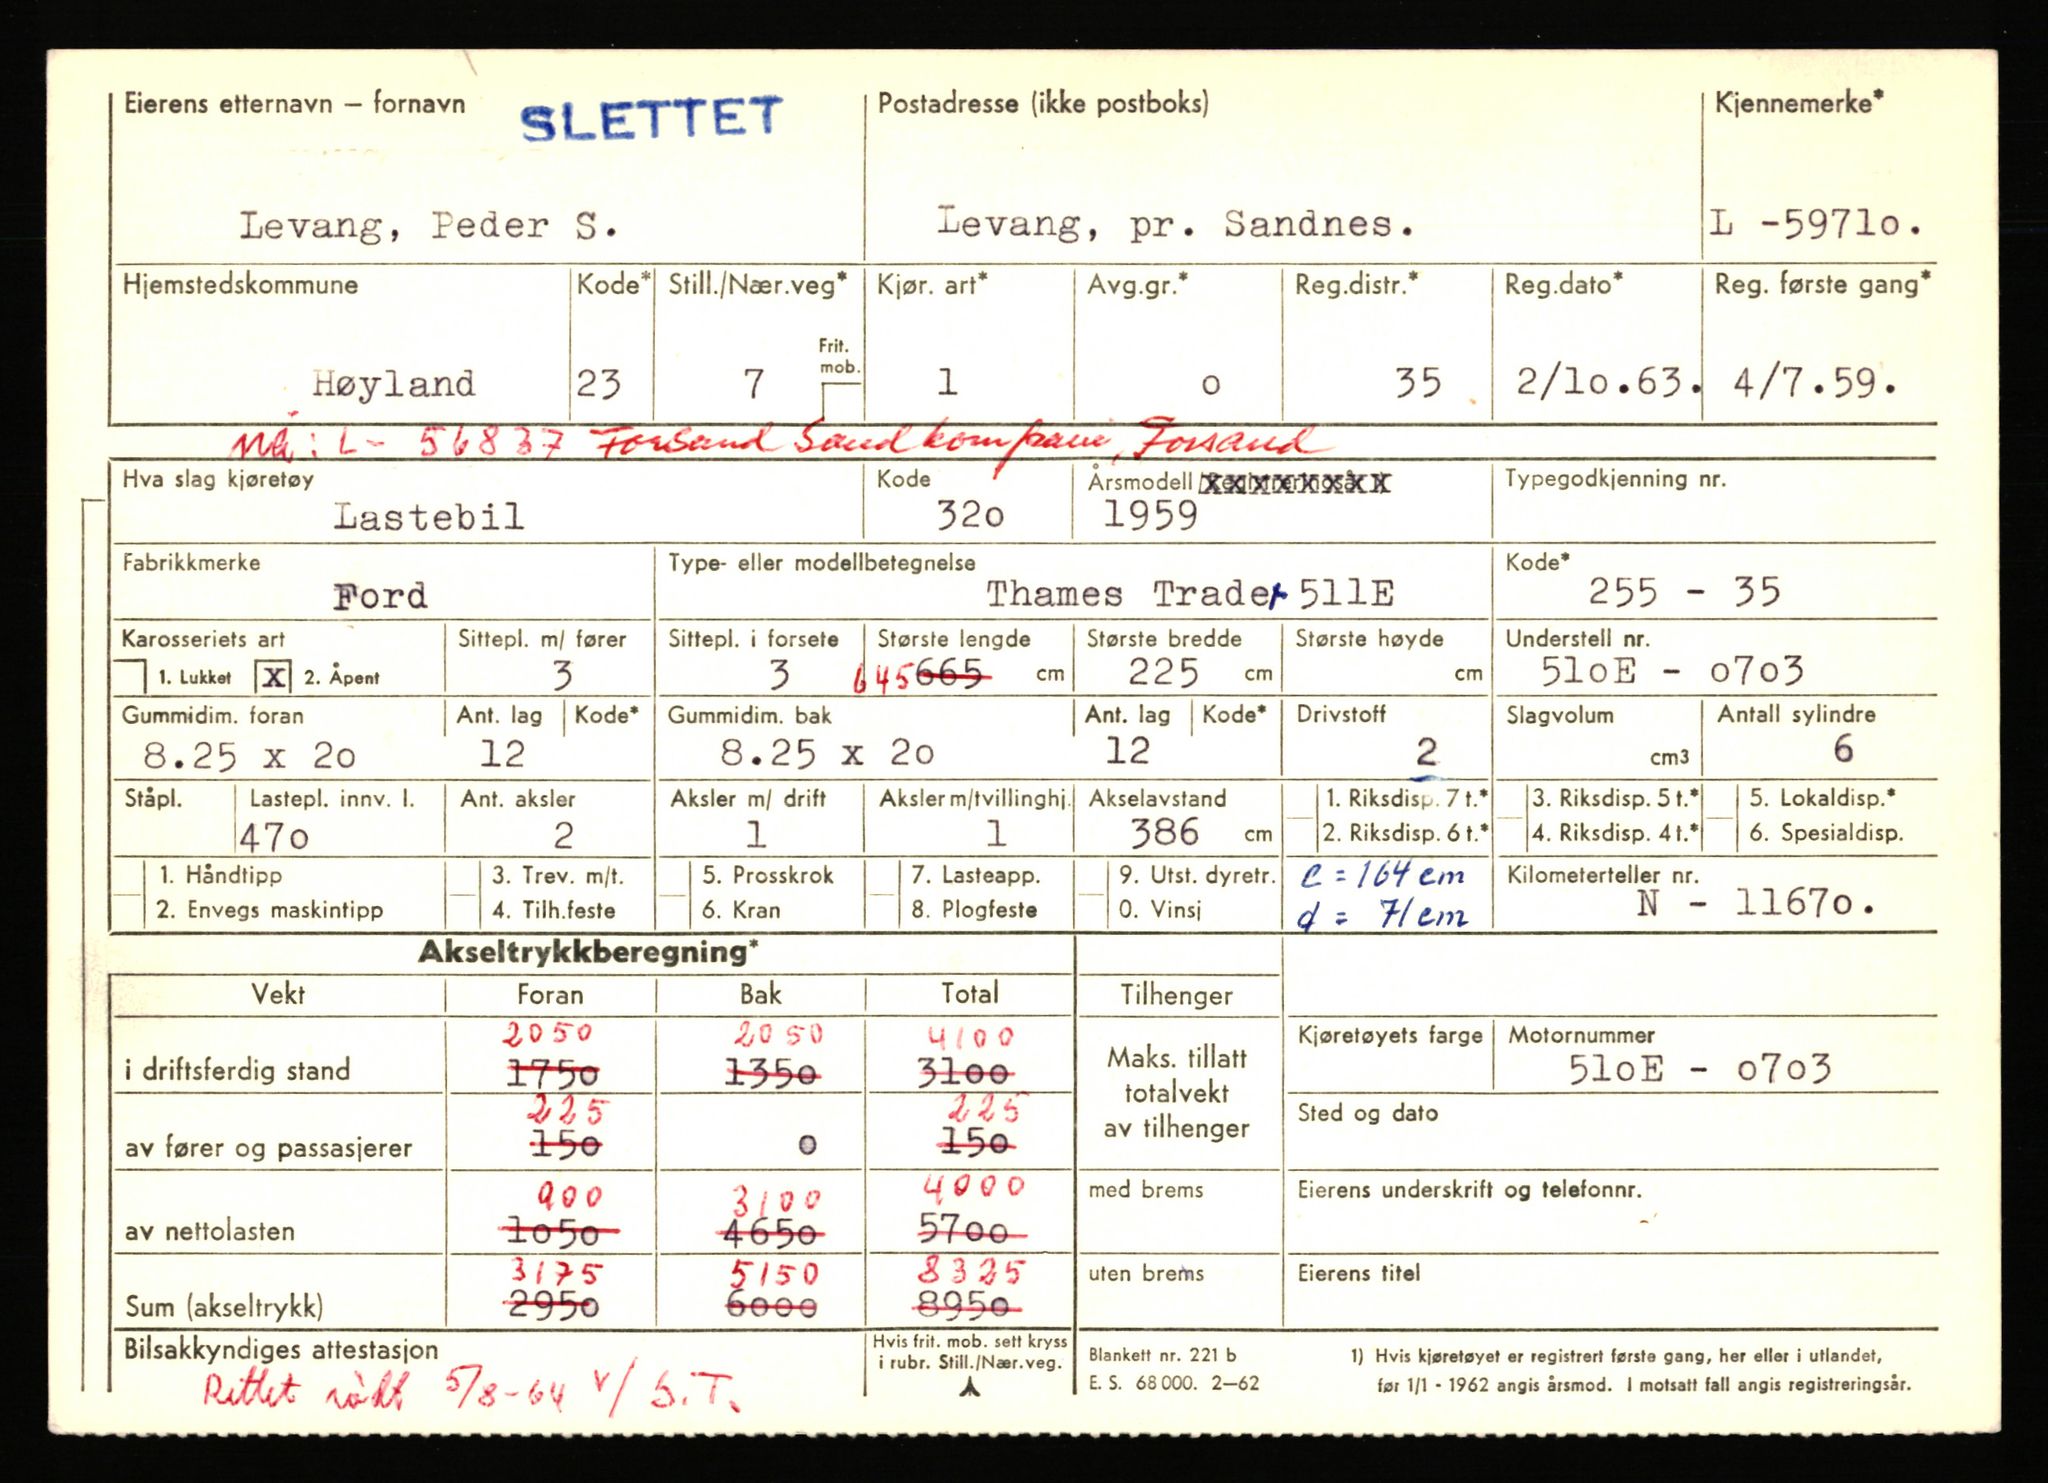 Eierens etternavn – fornavn SLETTET Postadresse (ikke postboks) Kjennemerke*
Levang, Peder S. Levang, pr. Sandnes. L -5971o.
Hjemstedskommune Kode* Still./Nær.veg* Kjør. art* Avg.gr.* Reg.distr.* Reg.dato* Reg. første gang*
Frit. mob.
Høyland 23 7 1 o 35 2/1o.63. 4/7.59.
Nå: L- 56837 Forsand Sandkompani, Forsand
Hva slag kjøretøy Kode Årsmodell Typegodkjenning nr.
Lastebil 32o 1959
Fabrikkmerke Type- eller modellbetegnelse Kode*
Ford Thames Trader 511E 255 - 35
Karosseriets art Sittepl. m/ fører Sittepl. i forsete Største lengde Største bredde Største høyde Understell nr.
1. Lukket X 2. Åpent 3 3 645 665 cm 225 cm cm 51oE - o7o3
Gummidim. foran Ant. lag Kode* Gummidim. bak Ant. lag Kode* Drivstoff Slagvolum Antall sylindre
8.25 x 2o 12 8.25 x 2o 12 2 cm3 6
Ståpl. Lastepl. innv. l. Ant. aksler Aksler m/ drift Aksler m/tvillinghj. Akselavstand 1. Riksdisp. 7 t.* 3. Riksdisp. 5 t.* 5. Lokaldisp.*
47o 2 1 1 386 cm 2. Riksdisp. 6 t.* 4. Riksdisp. 4 t.* 6. Spesialdisp.
1. Håndtipp 3. Trev. m/t. 5. Prosskrok 7. Lasteapp. 9. Utst. dyretr. c = 164 cm Kilometerteller nr.
2. Envegs maskintipp 4. Tilh.feste 6. Kran 8. Plogfeste 0. Vinsj d = 71 cm N - 1167o.
Akseltrykkberegning*
Vekt Foran Bak Total Tilhenger
2050 2050 4100 Kjøretøyets farge Motornummer
i driftsferdig stand 175o 135o 31oo Maks. tillatt 51oE - o7o3
225 225 totalvekt Sted og dato
av fører og passasjerer 15o o 15o av tilhenger
900 3100 4000 med brems Eierens underskrift og telefonnr.
av nettolasten 1o5o 465o 57oo
3175 5150 8325 uten brems Eierens titel
Sum (akseltrykk) 295o 6ooo 895o
Bilsakkyndiges attestasjon Hvis frit. mob. sett kryss i rubr. Still./Nær.veg. Blankett nr. 221 b 1) Hvis kjøretøyet er registrert første gang, her eller i utlandet,
Rettet rødt 5/8-64 v/ S.T. E. S. 68 000. 2—62 før 1/1 - 1962 angis årsmod. I motsatt fall angis registreringsår.